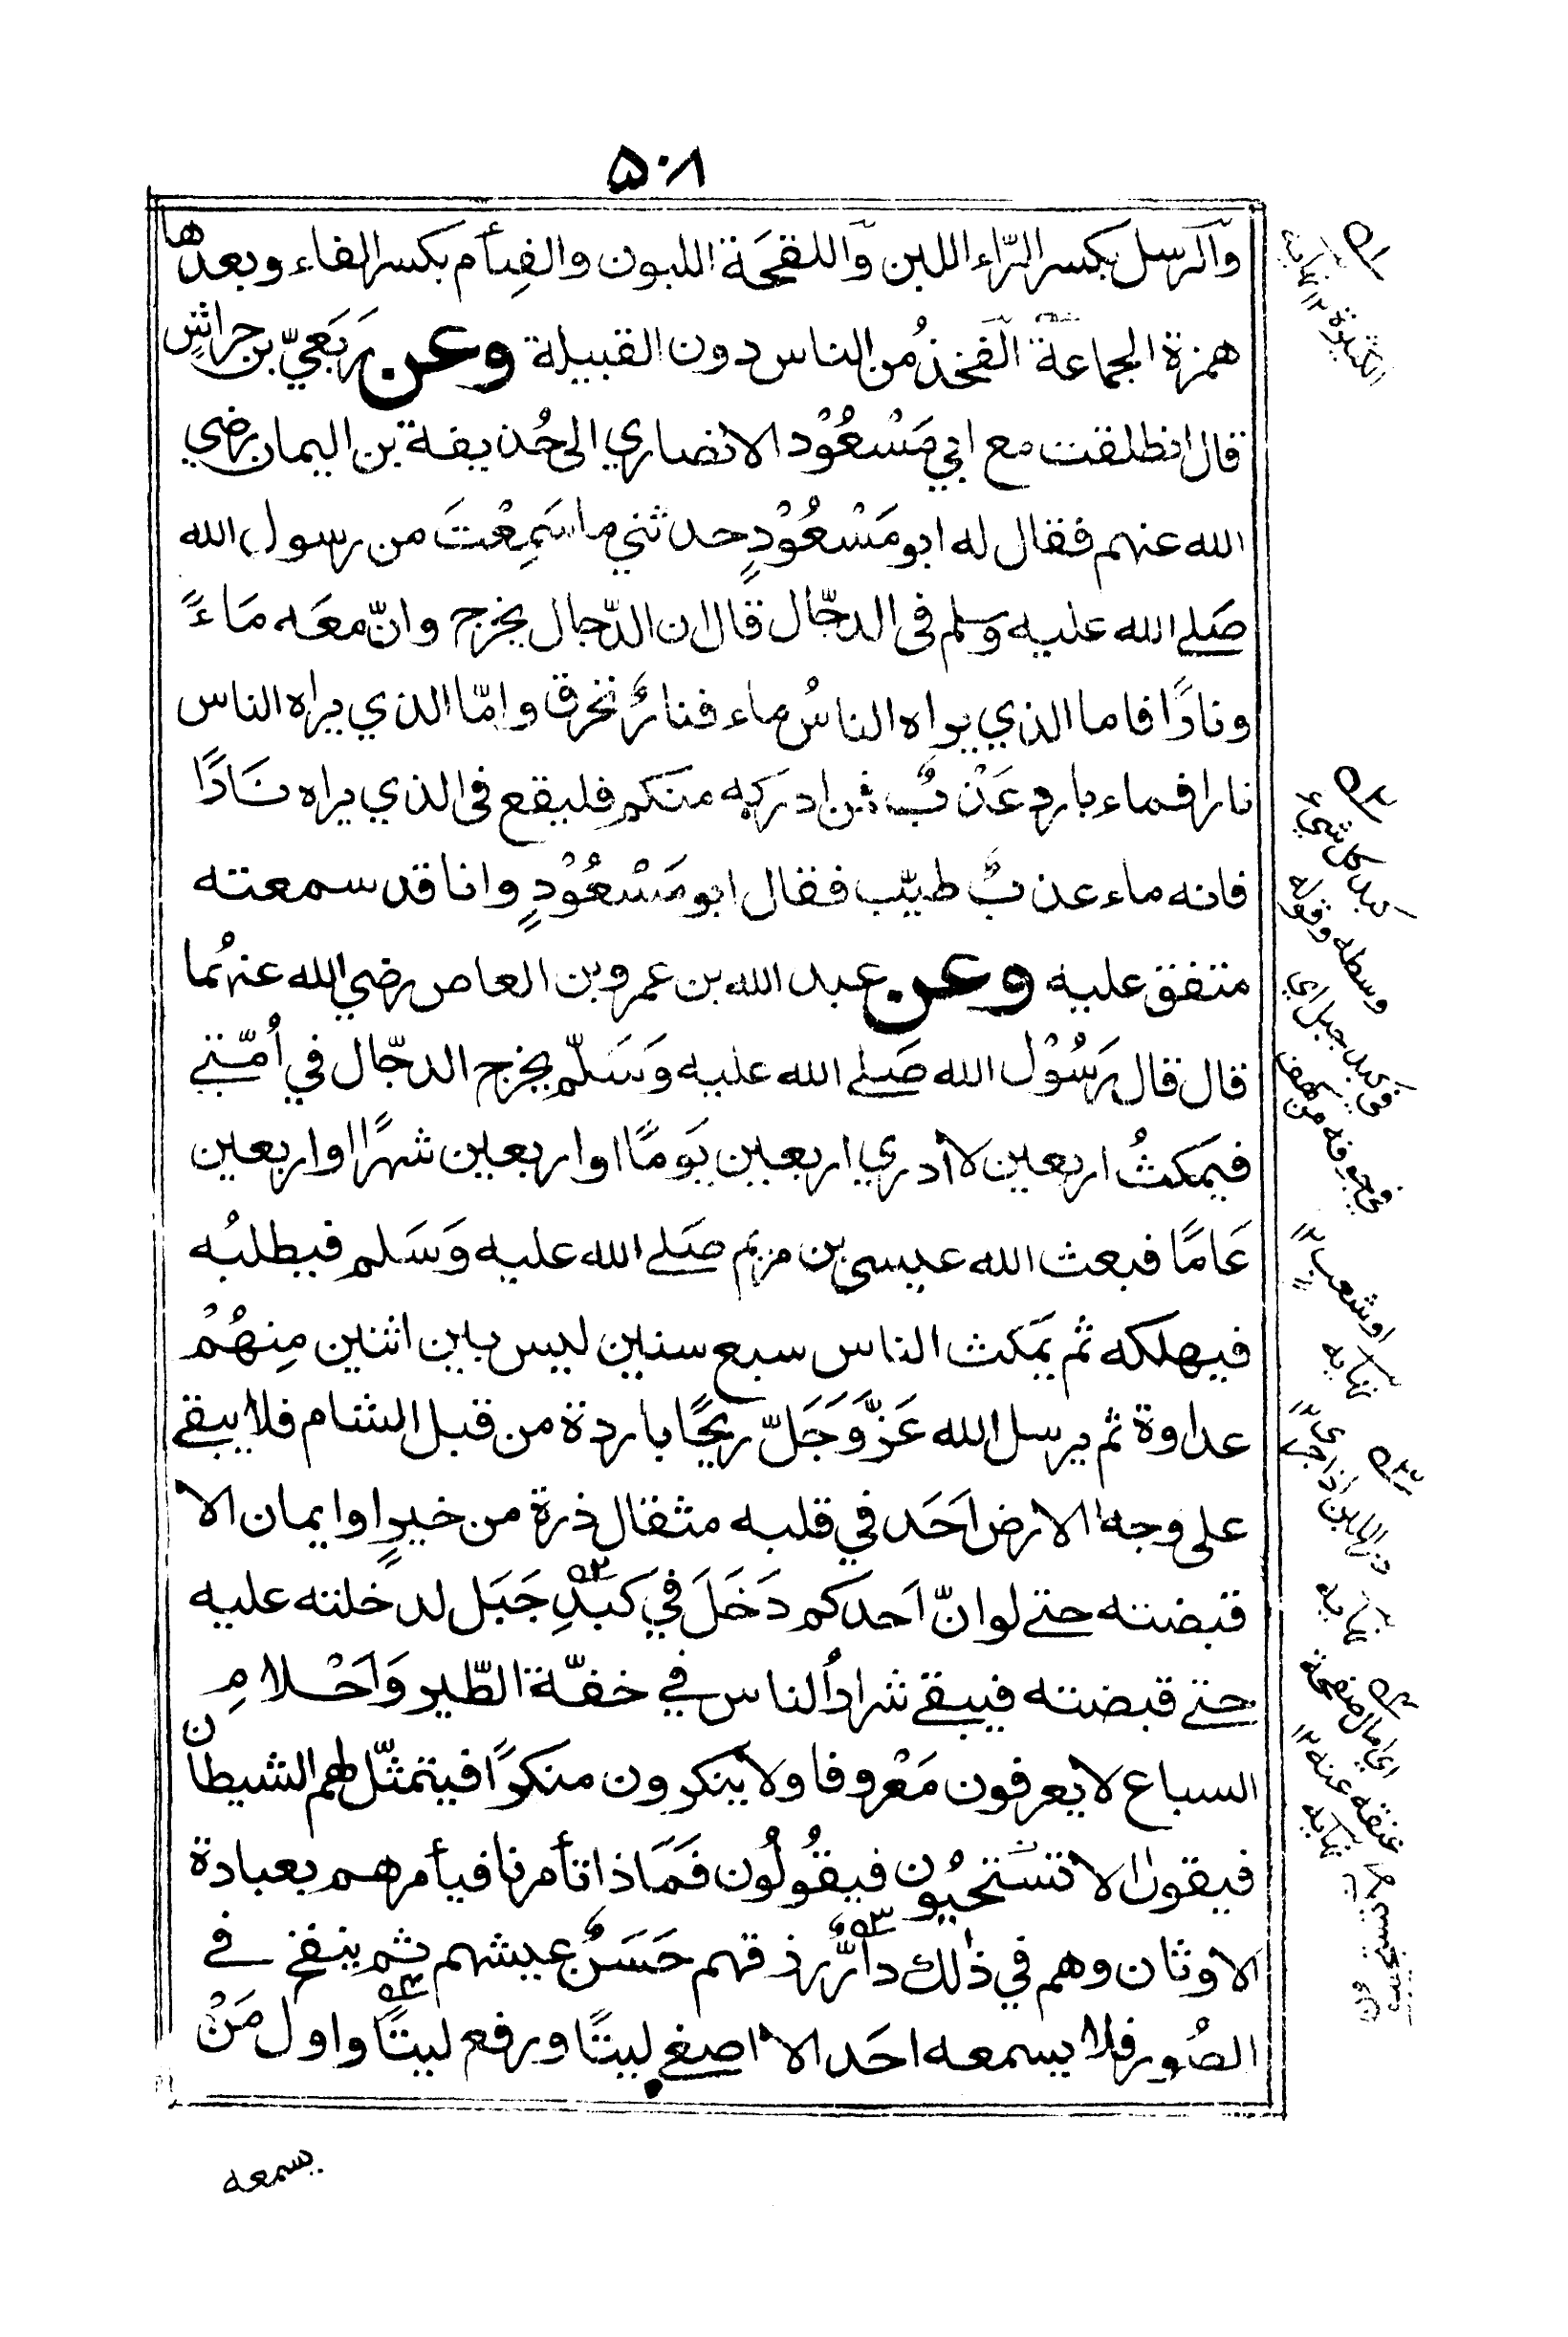 ۵۰۸
وَّالرسل بكسر الرّاء اللبن وَّاللقحَة اللبون والفِئأم بكسر الفاء وبعدها
همزة الجماعة الفَخذُ من الناس دون القبيلة وعن رَبَعيّ بن حراشٍ
قال انطلقت مع ابي مَسْعُوْد الانصاري الى حُذيفة بن اليمان رضي
الله عنهم فقال له ابو مَسْعُوْدٍ حدثني ما سَمِعْتَ من رسول الله
صَلے الله عليه وسلم فى الدجّال قال ان الدّجال يخرج وانّ معَه مَاءً
ونارًا فاما الذي يراه الناسُ ماء فنارٌ تخرق وامّا الذي يراه الناس
نارا فماء بارد عَذْبٌ فمن ادركه منكم فليقع فى الذي يراه نَارًا
فانه ماء عذبٌ طيّب فقال ابو مَسْعُوْدٍ وانا قد سمعته
متفق عليه وعن عبد الله بن عمرو بن العاص رضي الله عنهُما
قال قال رَسُوْل الله صَلے الله عليه وَسَلّم يخرج الدجّال في اُمّتي
فيمَكثُ اربعين لا أدري اربعين يَومًا او اربعين شهرًا او اربعين
عَامًا فبعث الله عيسى بن مريم صَلے الله عليه وَسَلم فيطلبُه
فيهلكه ثم يَمَكث الناس سبع سنين ليس بين اثنين مِنهُمْ
عداوة ثم يرسل الله عَزَّوَجَلّ ريحًا باردة من قبل الشام فلا يبقے
على وجه الارض اَحَد في قلبه مثقال ذرة من خيرٍ او ايمان الا
قبضته حتے لو انّ اَحدكم دَخَلَ في كَبدِ جَبَل لدخلته عليه
حتے قبضته فيبقے شرارُ الناس في خفّة الطّير وَاَحْلامِ
السباع لا يعرفون مَعْروفا ولا ينكرون منكرًا فيتمثّل لهم الشيطان
فيقول الا تستحيُون فيقُولُون فَمَاذا تأمرنا فيأمرهم بعبادة
الاوثان وهم في ذٰلك دارٌّ رزقهم حَسَنٌ عيشهم ثم ينفخ في
الصُور فلا يسمعه احَد الا اصغے ليتًا ورفع ليتًا واول مَنْ
يسمعه
الكثيرة ١٢ نهاية
كبد كل شيء
وسطه وقوله
في كبد جبل اي
في جوفه من كهف
او شعب ١٢
نهايه
در اللبن اذا جرى ١٢
نهايه
اي امال صفحة
عنقه عنه ١٢
نهايه